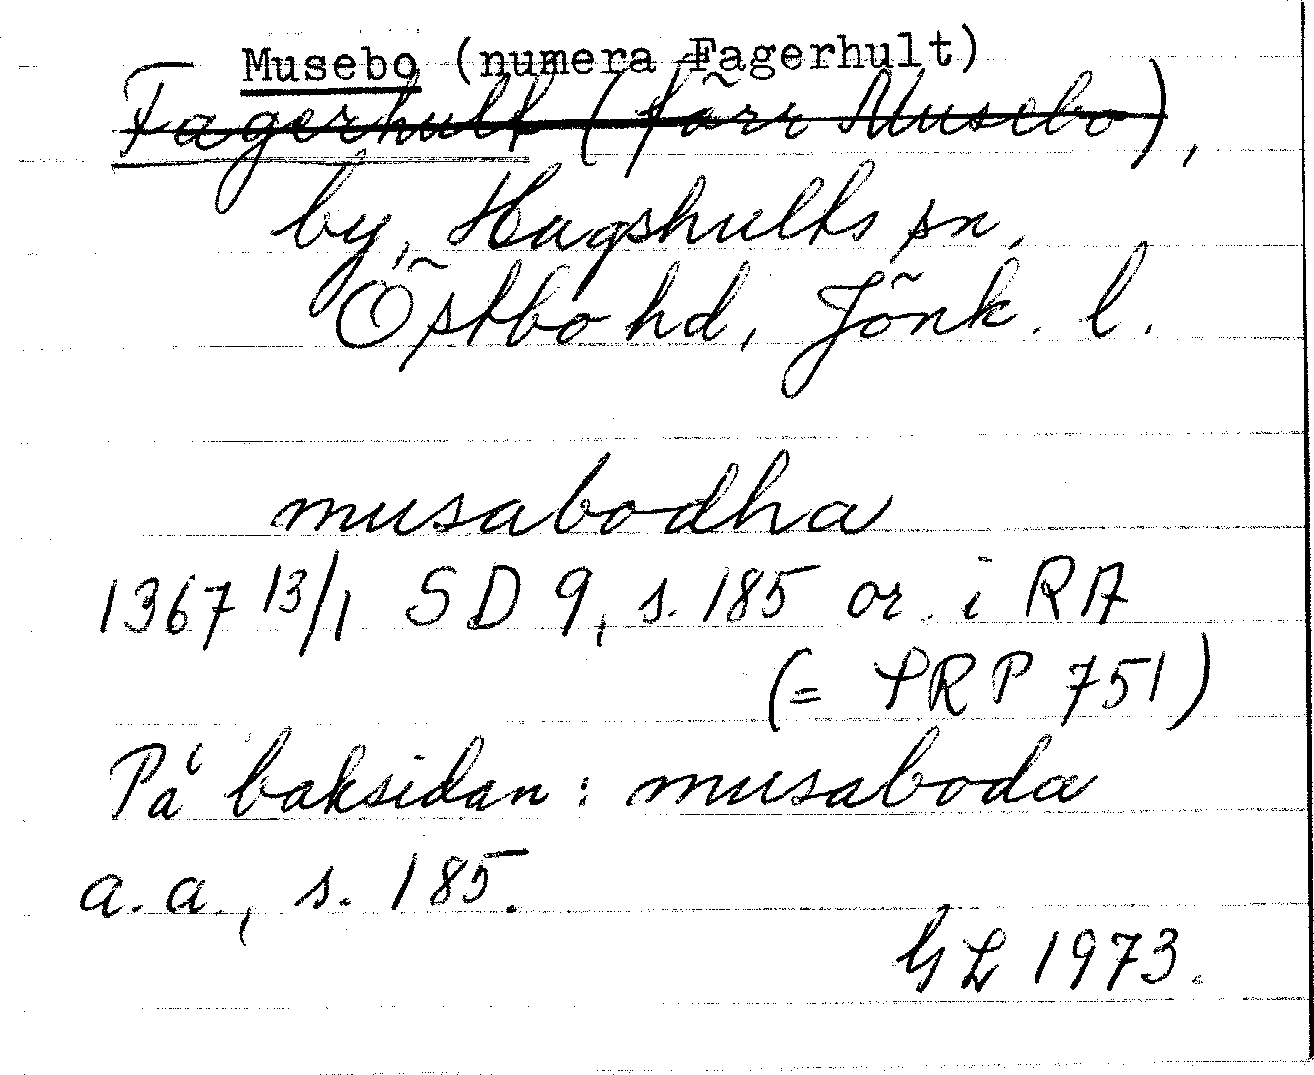 Musebo (numera Fagerhult)
Fagerhult (förr Musebo),
by, Hagshults sn,
Östbo hd, Jönk. l.
musabodha
1367 13/1 SD 9, s. 185 or. i RA
(= SRP 751)
På baksidan: musaboda
a.a., s. 185.
GL 1973.